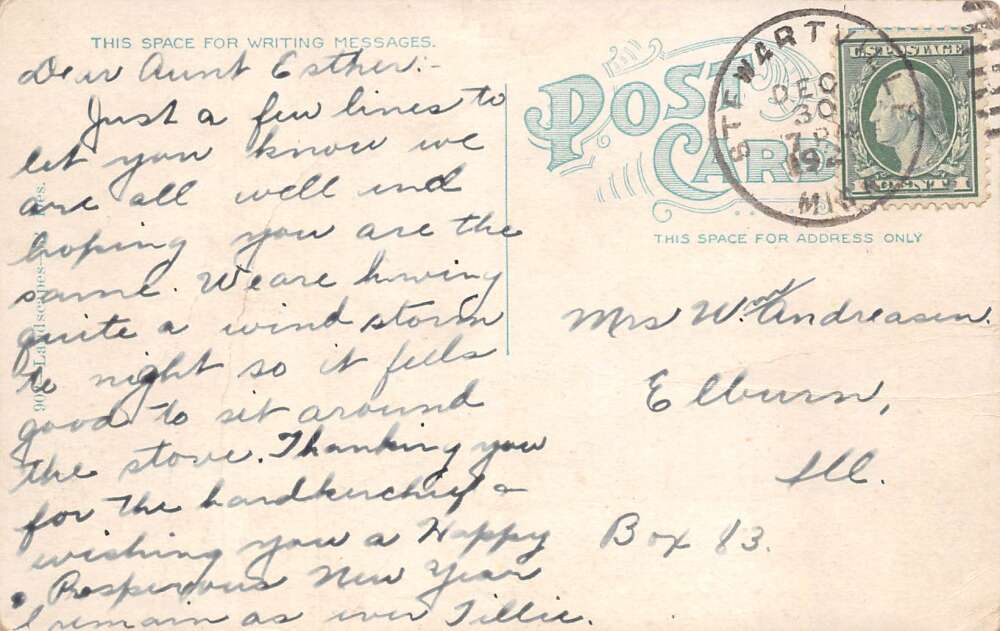 THIS SPACE FOR WRITING MESSAGES.
Dear Aunt Esther:-
Just a few lines to
let you know we
are all well and
hoping you are the
same. We are having
quite a wind storm
to night so it feels
good to sit around
the stove. Thanking you
for the handkerchief &
wishing you a Happy
& Prosperous New Year
I remain as ever Tillie.
POST CARD
STEWART
DEC
30
192
MICH
U.S. POSTAGE
1 CENT 1
THIS SPACE FOR ADDRESS ONLY
Mrs Wm Andreasen.
Elburn,
Ill.
Box 83.